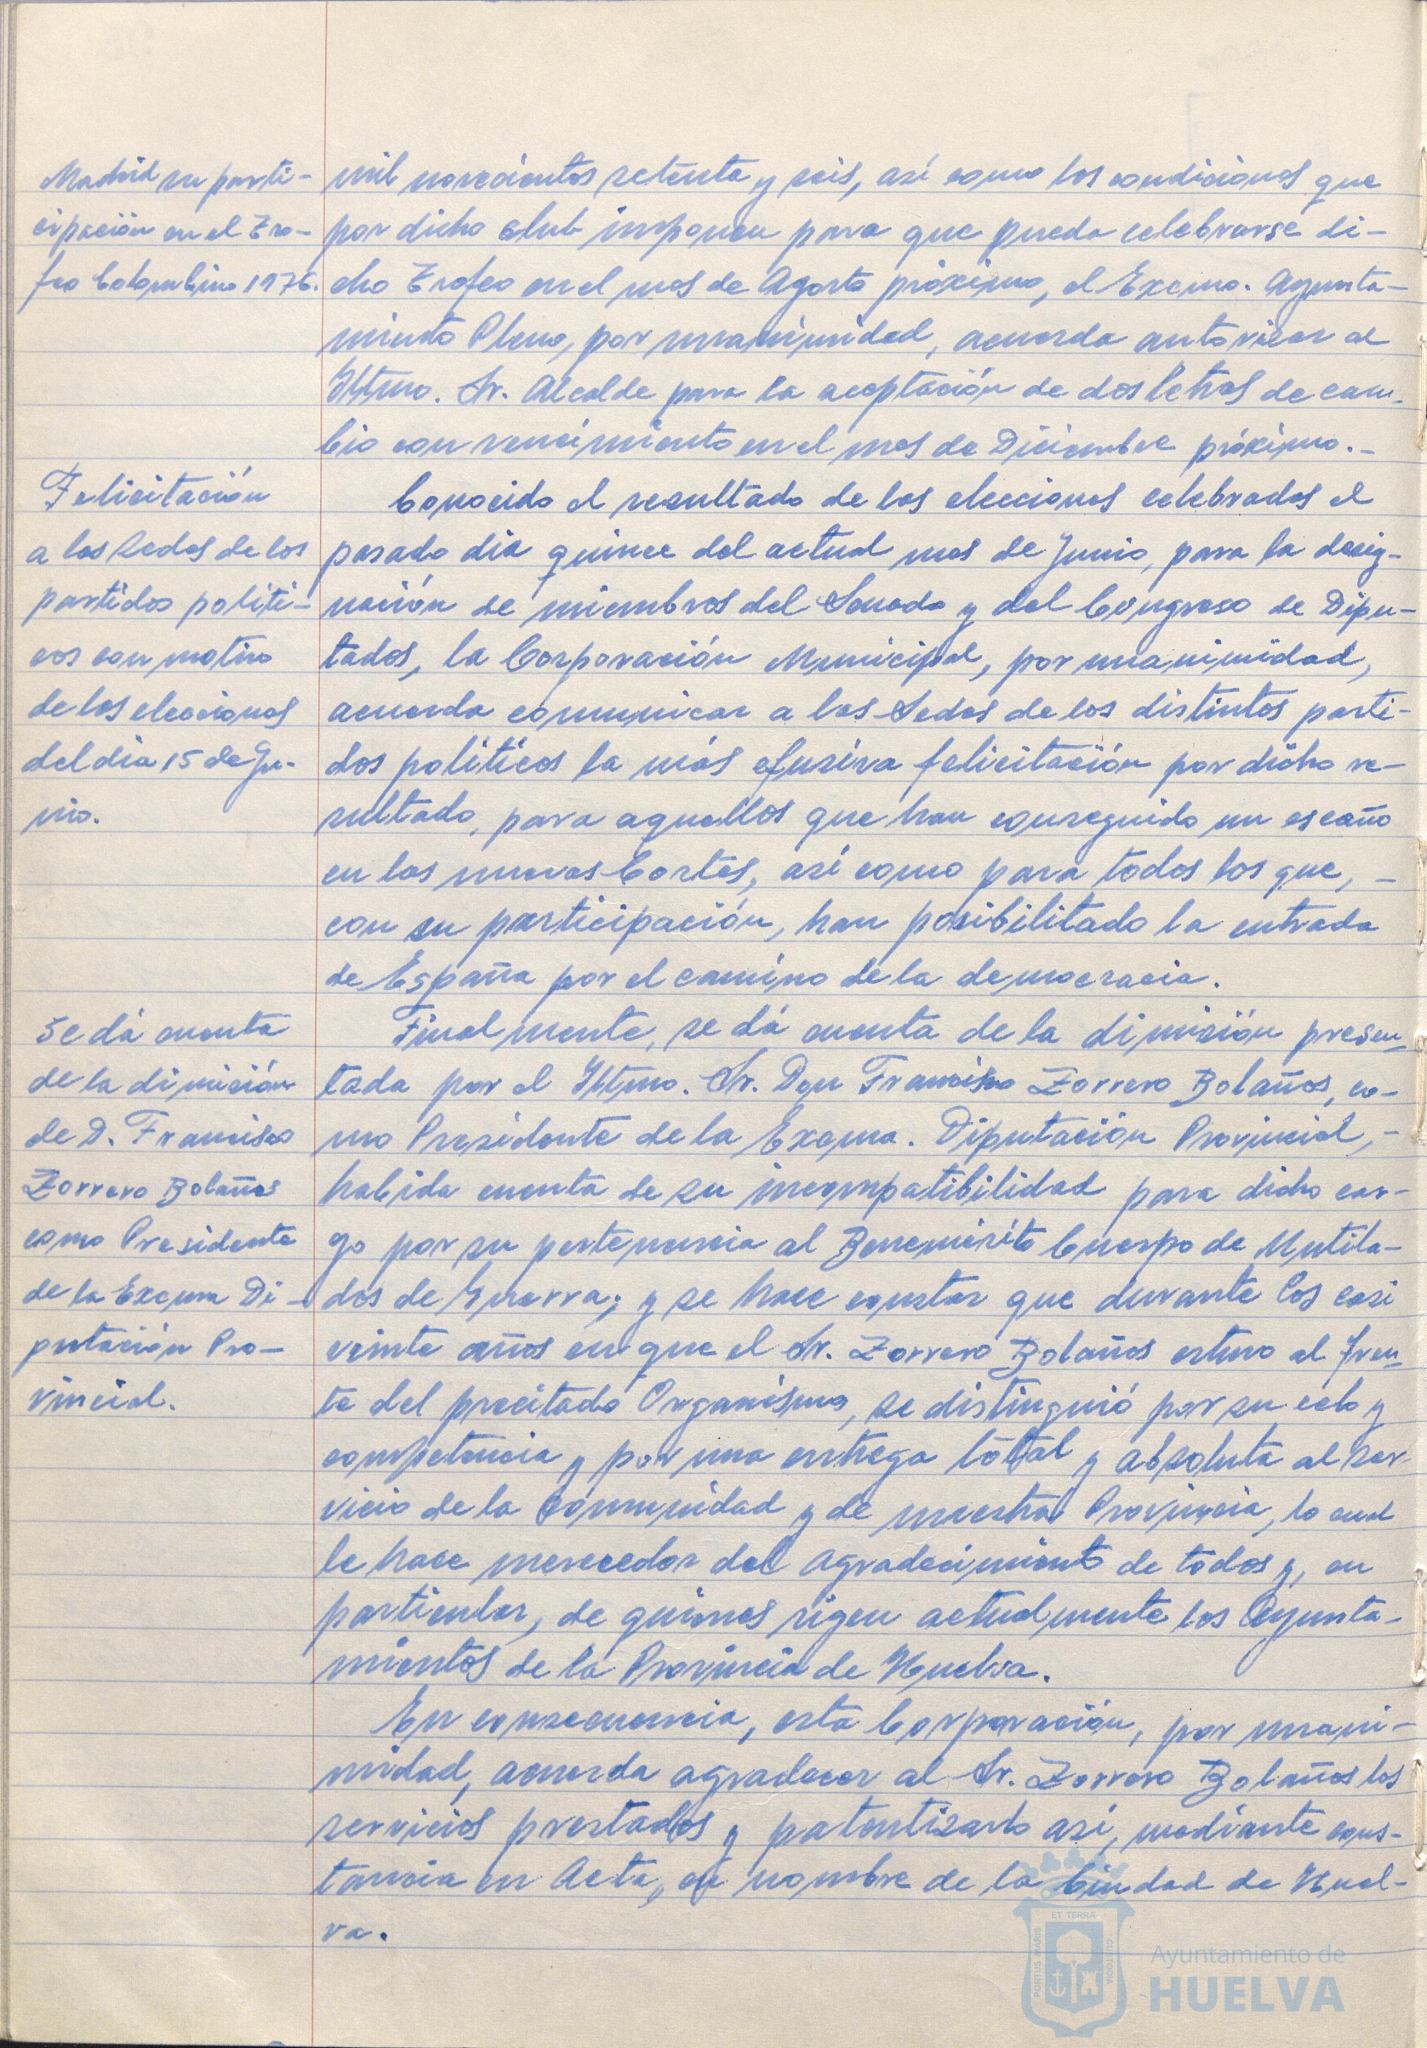 Madrid su parti-
cipación en el Tro-
feo Colombino 1976.
mil novecientos setenta y seis, así como las condiciones que
por dicho club imponen para que pueda celebrarse di-
cho Trofeo en el mes de Agosto próximo, el Excmo. Ayunta-
miento Pleno, por unanimidad, acuerda autorizar al
Iltmo. Sr. Alcalde para la aceptación de dos letras de cam-
bio con vencimiento en el mes de Diciembre próximo.-
Felicitación
a las Sedes de los
partidos politi-
cos con motivo
de las elecciones
del dia 15 de Ju-
nio.
Conocido el resultado de las elecciones celebradas el
pasado dia quince del actual mes de Junio, para la desig-
nación de miembros del Senado y del Congreso de Dipu-
tados, la Corporación Municipal, por unanimidad,
acuerda comunicar a las Sedes de los distintos parti-
dos políticos la más efusiva felicitación por dicho re-
sultado, para aquellos que han conseguido un escaño
en las nuevas Cortes, así como para todos los que, -
con su participación, han posibilitado la entrada
de España por el camino de la democracia.
Se dá cuenta
de la dimisión
de D. Francisco
Zorrero Bolaños
como Presidente
de la Excma Di-
putación Pro-
vincial.
Finalmente, se dá cuenta de la dimisión presen-
tada por el Iltmo. Sr. Don Francisco Zorrero Bolaños, co-
mo Presidente de la Excma. Diputación Provincial, -
habida cuenta de su incompatibilidad para dicho car-
go por su pertenencia al Benemérito Cuerpo de Mutila-
dos de Guerra; y se hace constar que durante los casi
veinte años en que el Sr. Zorrero Bolaños estuvo al fren-
te del precitado Organismo, se distinguió por su celo y
competencia y por una entrega total y absoluta al ser-
vicio de la Comunidad y de nuestra Provincia, lo cual
le hace merecedor del agradecimiento de todos y, en
particular, de quienes rigen actualmente los Ayunta-
mientos de la Provincia de Huelva.
En consecuencia, esta Corporación, por unani-
midad, acuerda agradecer al Sr. Zorrero Bolaños los
servicios prestados y patentizarlo así, mediante cons-
tancia en Acta, en nombre de la Ciudad de Huel-
va.
ET TERRAE
PORTUS MARIS
CUSTODIA
Ayuntamiento de
HUELVA